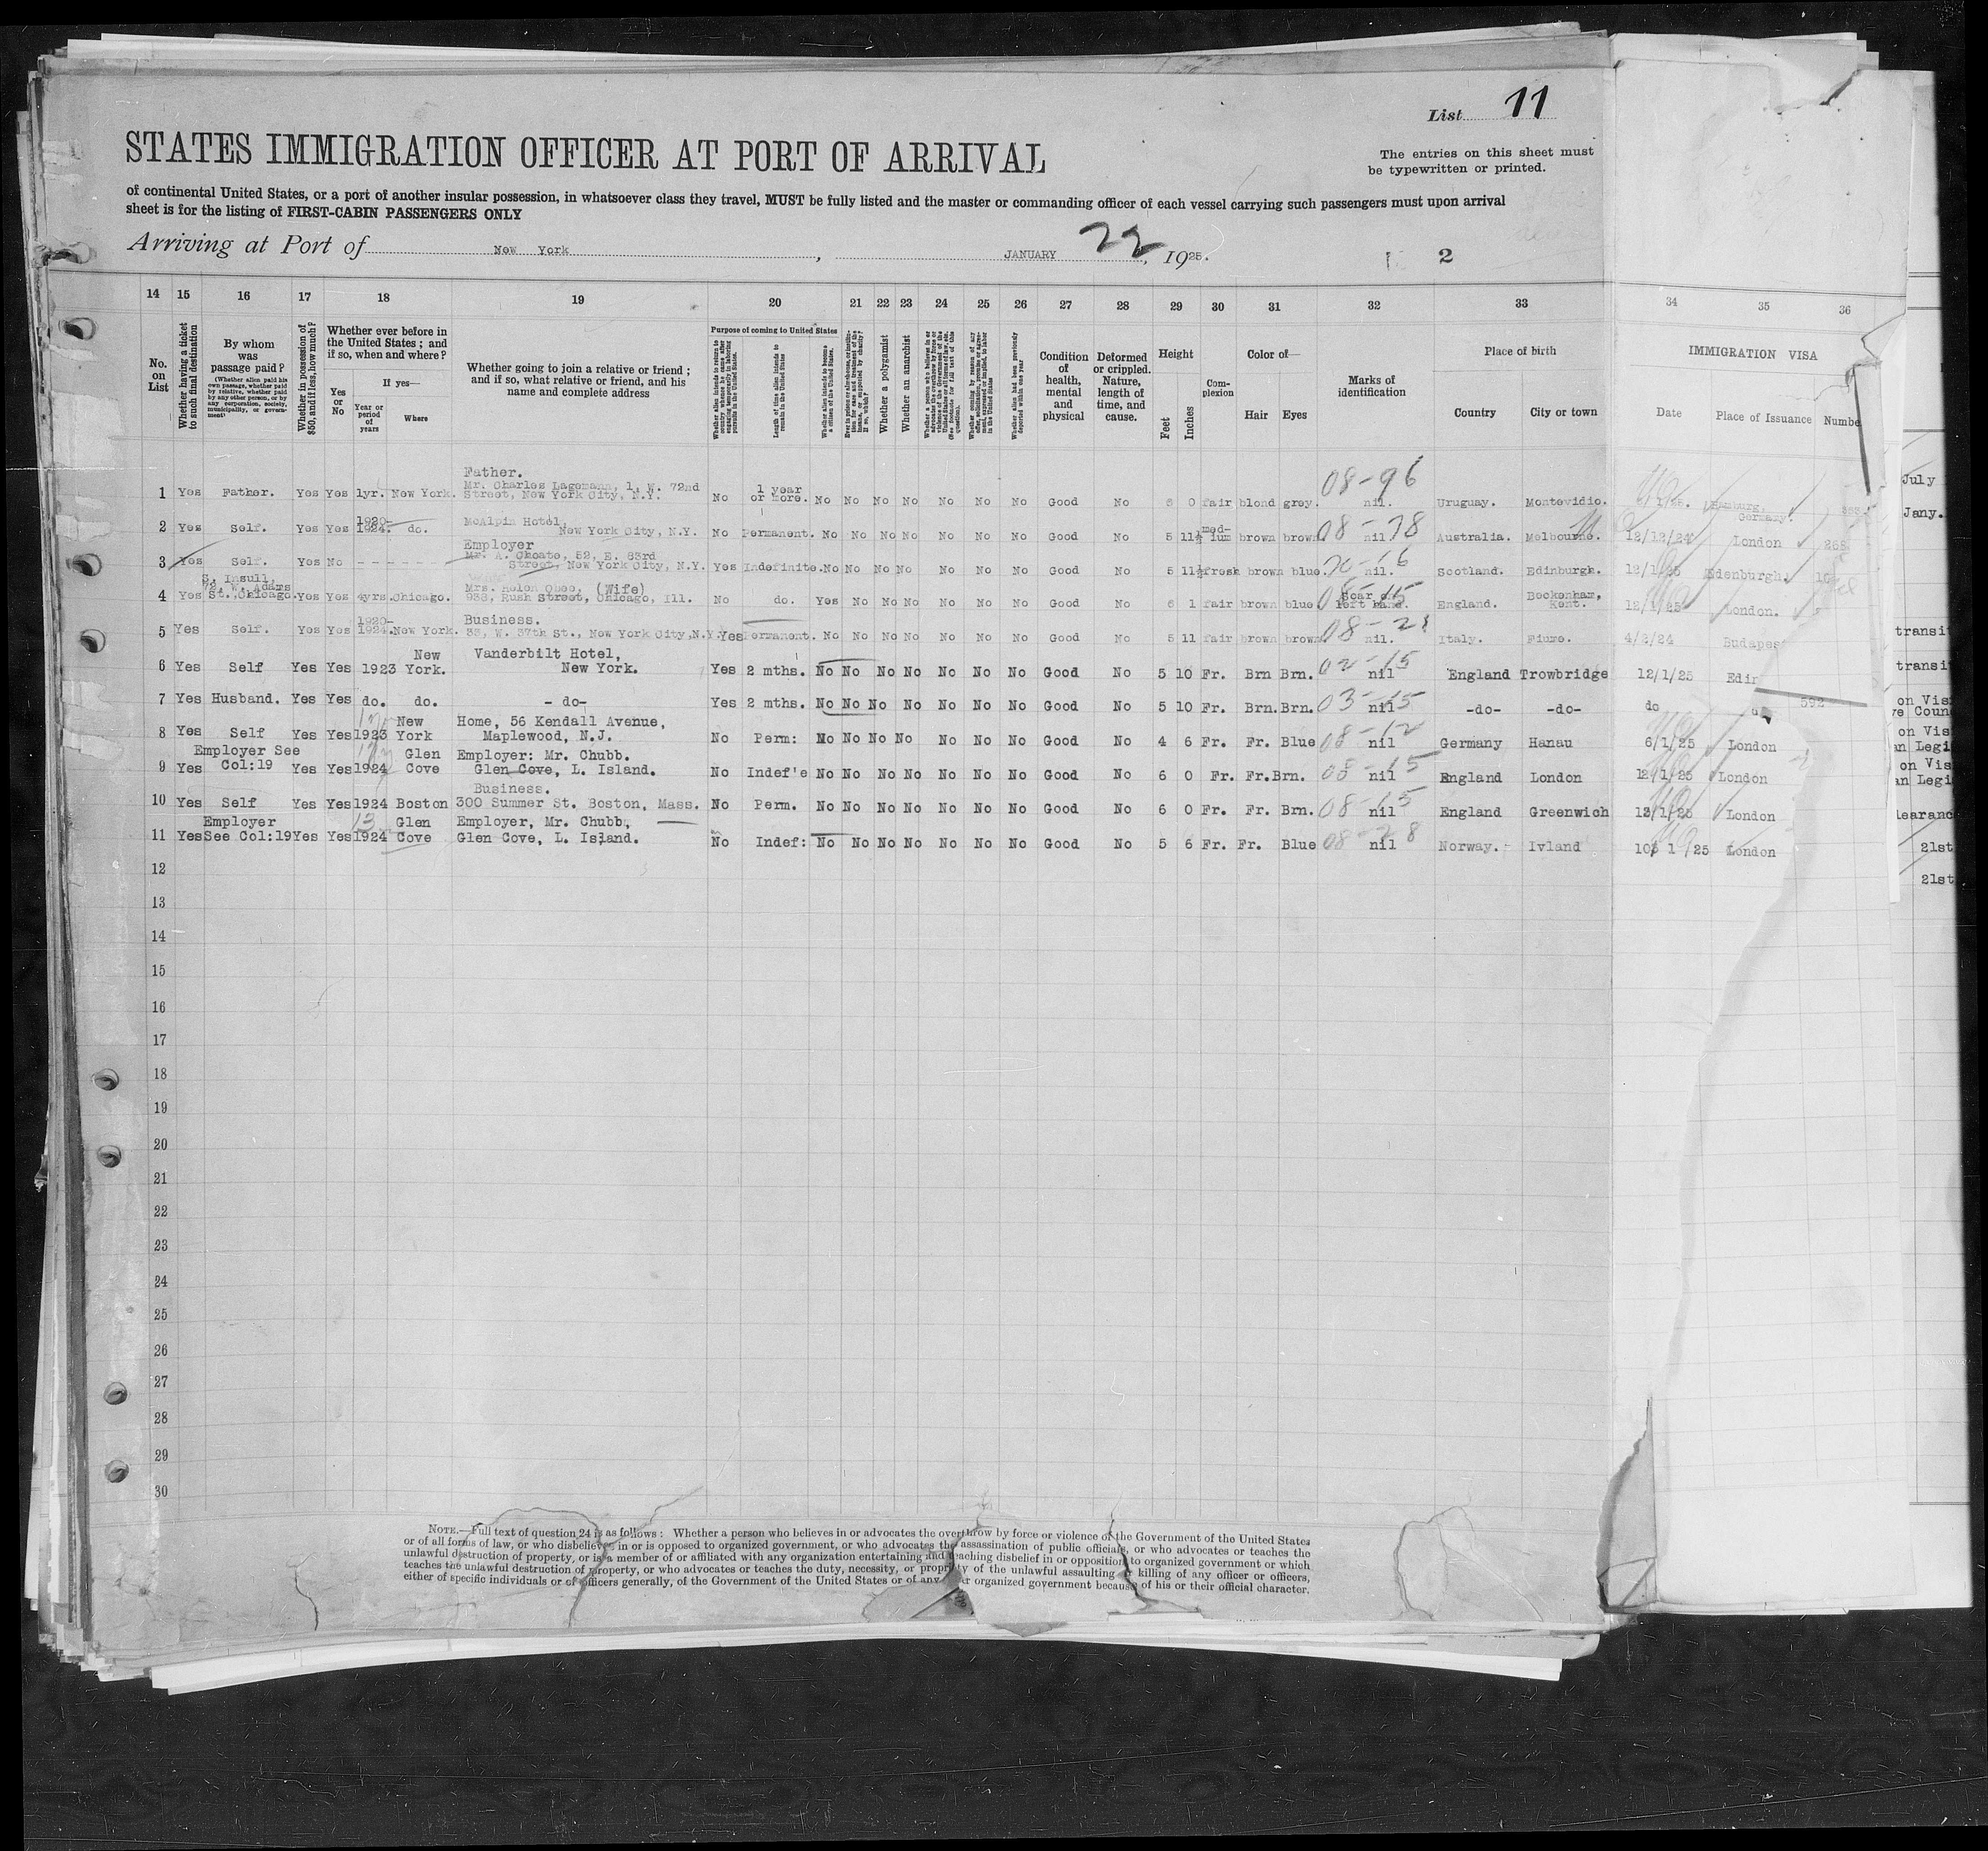 List 11
STATES IMMIGRATION OFFICER AT PORT OF ARRIVAL
The entries on this sheet must
be typewritten or printed.
of continental United States, or a port of another insular possession, in whatsoever class they travel, MUST be fully listed and the master or commanding officer of each vessel carrying such passengers must upon arrival
sheet is for the listing of FIRST-CABIN PASSENGERS ONLY
Arriving at Port of New York, JANUARY 22, 1925.
2
14 15 16 17 18 19 20 21 22 23 24 25 26 27 28 29 30 31 32 33 34 35 36
No. on List
Whether having a ticket to such final destination
By whom was passage paid?
(Whether alien paid his own passage, whether paid by relative, whether paid by any other person, or by any corporation, society, municipality, or government)
Whether in possession of $50, and if less, how much?
Whether ever before in the United States; and if so, when and where?
Yes or No
If yes—
Year or period of years
Where
Whether going to join a relative or friend; and if so, what relative or friend, and his name and complete address
Purpose of coming to United States
Length of time alien intends to remain in the United States
Whether alien intends to become a citizen of the United States.
Whether a polygamist
Whether an anarchist
Condition of health, mental and physical
Deformed or crippled. Nature, length of time, and cause.
Height
Feet
Inches
Complexion
Color of—
Hair
Eyes
Marks of identification
Place of birth
Country
City or town
IMMIGRATION VISA
Date
Place of Issuance
Numbe
08-96
Father.
1 Yes Father. Yes Yes 1yr. New York. Mr. Charles Lagemann, 1, W. 72nd Street, New York City, N.Y. No 1 year or more. No No No No No No No Good No 6 0 fair blond grey. nil. Uruguay. Montevidio. Hamburg, Germany.
2 Yes Self. Yes Yes 1920-1924. do. McAlpin Hotel, New York City, N.Y. No Permanent. No No No No No No No Good No 5 11½ med-ium brown brown 08-78 nil Australia. Melbourne. 12/12/24 London
Employer
3 Yes Self. Yes No - - - - - - Mr. A. Choate, 52, E. 63rd Street, New York City, N.Y. Yes Indefinite. No No No No No No No Good No 5 11½ fresh brown blue. nil. Scotland. Edinburgh. Edenburgh.
4 Yes S. Insull, W. Adams St., Chicago. Yes Yes 4yrs. Chicago. (Wife) 938, Rush Street, Chicago, Ill. No do. Yes No No No No No No Good No 6 1 fair brown blue Scar on left hand. England. Beckenham, Kent. 12/1/25 London.
Business.
5 Yes Self. Yes Yes 1920-1924. New York. 33, W. 37th St., New York City, N.Y. Yes Permanent. No No No No No No No Good No 5 11 fair brown brown nil. Italy. Fiume. 4/2/24 Budapes
6 Yes Self Yes Yes 1923 New York. Vanderbilt Hotel, New York. Yes 2 mths. No No No No No No No Good No 5 10 Fr. Brn Brn. 02-15 nil England Trowbridge 12/1/25 Edin
7 Yes Husband. Yes Yes do. do. - do- Yes 2 mths. No No No No No No No Good No 5 10 Fr. Brn. Brn. 03-15 nil -do- -do- do 592
8 Yes Self Yes Yes 1923 New York Home, 56 Kendall Avenue, Maplewood, N.J. No Perm: No No No No No No No Good No 4 6 Fr. Fr. Blue 08-12 nil Germany Hanau 6/1/25 London
9 Yes Employer See Col:19 Yes Yes 1924 Glen Cove Employer: Mr. Chubb. Glen Cove, L. Island. No Indef'e No No No No No No No Good No 6 0 Fr. Fr. Brn. 08-15 nil England London 12/1/25 London
Business.
10 Yes Self Yes Yes 1924 Boston 300 Summer St. Boston, Mass. No Perm. No No No No No No No Good No 6 0 Fr. Fr. Brn. 08-15 nil England Greenwich 13/1/25 London
11 Yes Employer See Col:19 Yes Yes 1924 Glen Cove Employer, Mr. Chubb, Glen Cove, L. Island. No Indef: No No No No No No No Good No 5 6 Fr. Fr. Blue nil Norway. Ivland London
12
13
14
15
16
17
18
19
20
21
22
23
24
25
26
27
28
29
30
July
Jany.
transit
transit
on Vis
on Vis
an Legi
on Vis
an Legi
learanc
21st
21st
NOTE.—Full text of question 24 is as follows: Whether a person who believes in or advocates the overthrow by force or violence of the Government of the United States
or of all forms of law, or who disbelieves in or is opposed to organized government, or who advocates the assassination of public officials, or who advocates or teaches the
unlawful destruction of property, or is a member of or affiliated with any organization entertaining and teaching disbelief in or opposition to organized government or which
teaches the unlawful destruction of property, or who advocates or teaches the duty, necessity, or propriety of the unlawful assaulting or killing of any officer or officers,
either of specific individuals or of officers generally, of the Government of the United States or of any organized government because of his or their official character.